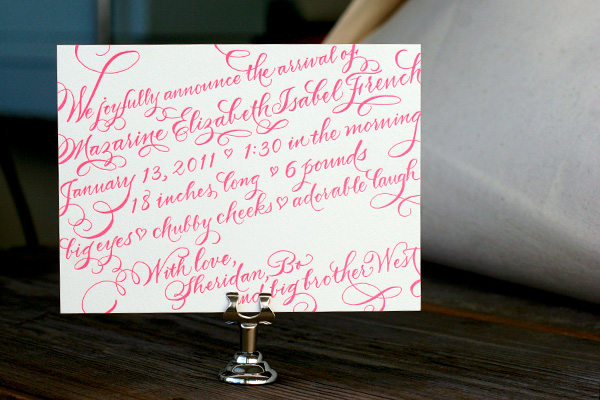 We joyfully announce the arrival of
Mazarine Elizabeth Isabel French
January 13, 2011 ♡ 1:30 in the morning
18 inches long ♡ 6 pounds
big eyes ♡ chubby cheeks ♡ adorable laugh
With love,
Sheridan, Bo
and big brother West